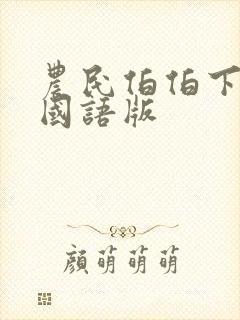 農民伯伯下
國語版
顏萌萌萌